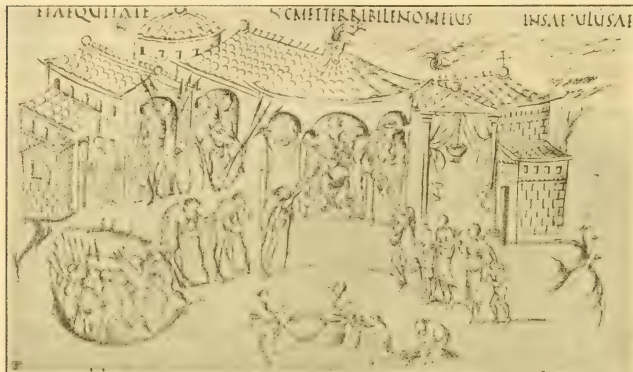 ETAEQUITATE SCMETTERRIBILENOMEIUS INSAECULUSAE